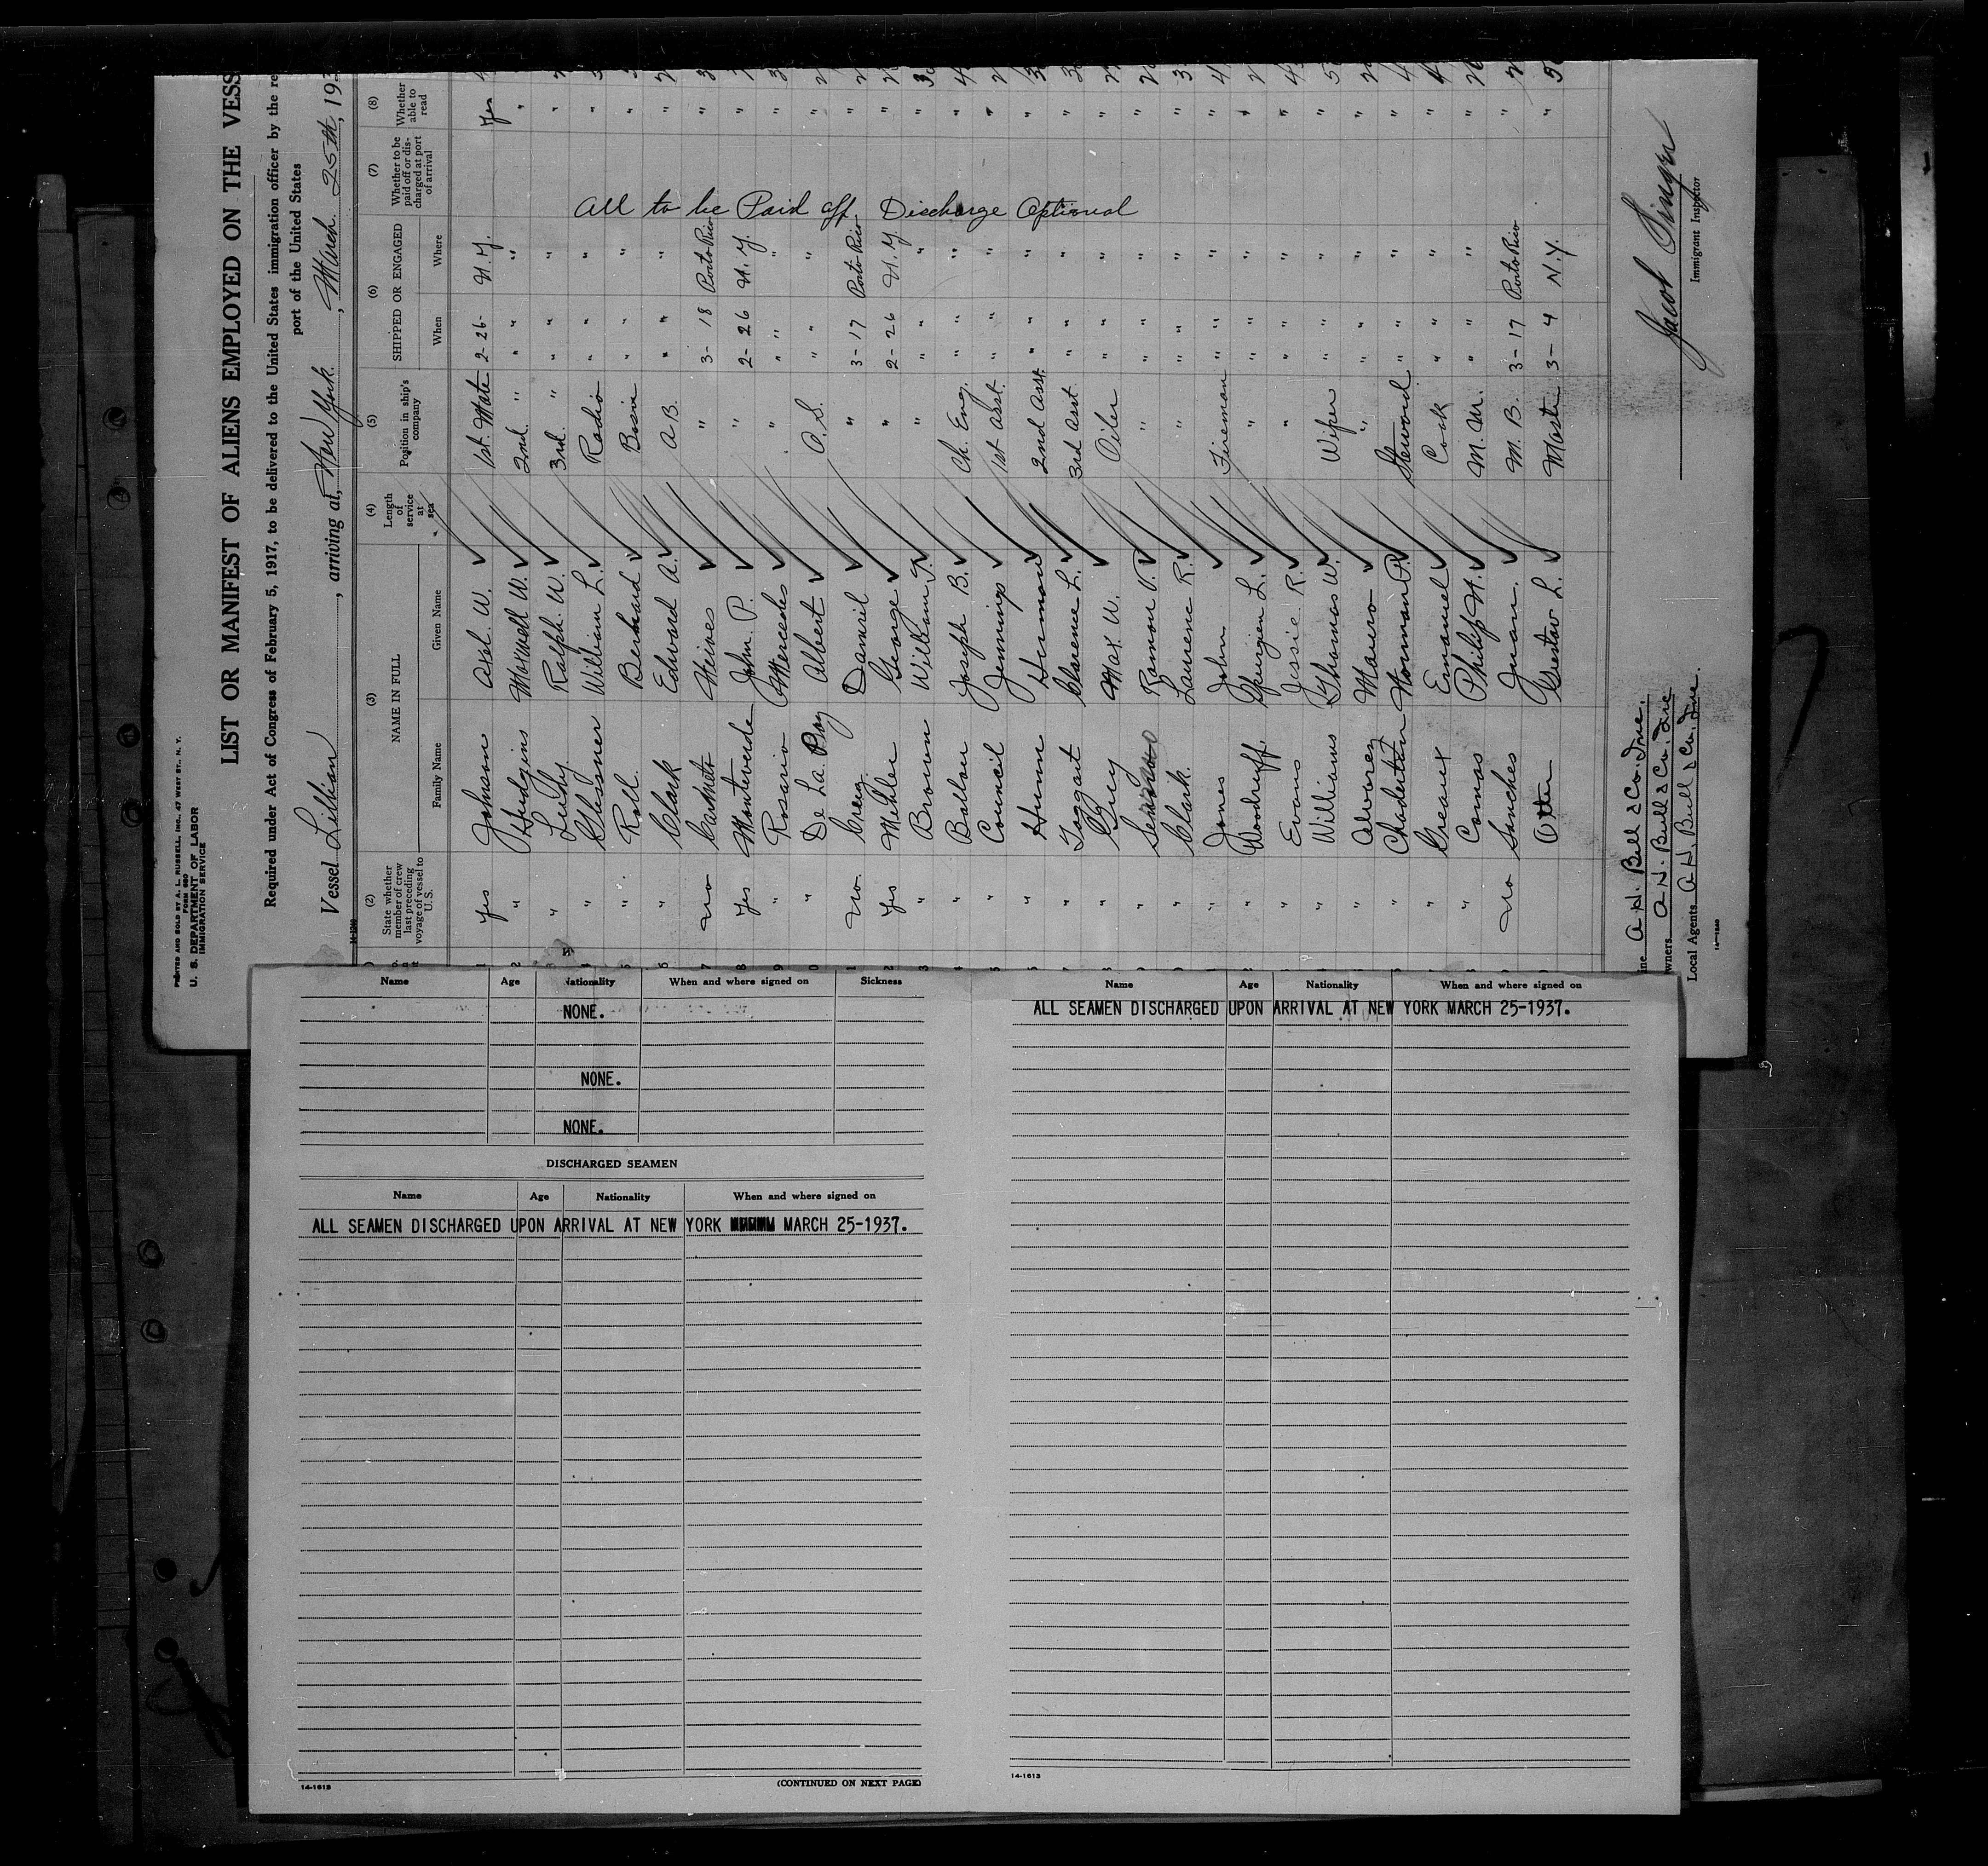 PRINTED AND SOLD BY A. L. RUSSELL, INC., 47 WEST ST., N. Y.
FORM 680
U. S. DEPARTMENT OF LABOR
IMMIGRATION SERVICE
LIST OR MANIFEST OF ALIENS EMPLOYED ON THE VESS
Required under Act of Congress of February 5, 1917, to be delivered to the United States immigration officer by the re
port of the United States
Vessel Lillian, arriving at, New York, March 25th, 193
14-1240
(2) State whether member of crew last preceding voyage of vessel to U. S.
(3) NAME IN FULL
Family Name Given Name
(4) Length of service at sea
(5) Position in ship's company
(6) SHIPPED OR ENGAGED
When Where
(7) Whether to be paid off or discharged at port of arrival
(8) Whether able to read
All to be Paid off Discharge Optional
1 Yes Johnson Axel. W. 1st. Mate 2-26- N.Y. Yes
2 " Hudgins Maxwell W. 2nd. " " " " "
3 " Leidy Ralph. W. 3rd. " " " " "
4 " William L. Radio " " " "
5 " Roll. Bernhard " " " "
6 " Clark Edward A. A.B. " " " "
7 No " 3-18 Porto Rico "
8 Yes Monteverde John. P. " 2-26 N.Y. "
9 " Rosario Mercedes " " " "
0 " De La Albert O.S. " " "
1 No. Craig " 3-17 Porto Rico "
2 Yes Mehler George " 2-26 N.Y. "
3 " Brown William " " " "
4 " Ballou Joseph B. Ch. Eng. " " " "
5 " Council Jennings 1st Asst. " " " "
6 " Hurman 2nd Asst. " " " "
7 " Taggart Clarence L. 3rd Asst. " " " "
8 " Max. W. Oiler " " " "
9 " Ramon " " " " "
0 " Clark. Laurence R. " " " "
1 " Jones John Fireman " " " "
2 " Woodruff. L. " " " " "
3 " Evans Jessie R. " " " " "
4 " Williams Thomas W. Wiper " " " "
5 " Alvarez Mauro " " " " "
6 " Norman Steward " " " "
7 " Greaux Emanuel Cook " " " "
8 " Comas Philip M.M. " " " "
9 No Sanches Juan. M.B. 3-17 Porto Rico "
Otten L. Master 3-4 N.Y. "
ine A.H. Bull & Co. Inc.
wners A.H. Bull & Co. Inc
Local Agents A.H. Bull & Co, Inc.
14-1240
Jacob Singer
Immigrant Inspector
Name Age Nationality When and where signed on Sickness
NONE.
NONE.
NONE.
DISCHARGED SEAMEN
Name Age Nationality When and where signed on
ALL SEAMEN DISCHARGED UPON ARRIVAL AT NEW YORK MARCH 25-1937.
14-1613
(CONTINUED ON NEXT PAGE)
Name Age Nationality When and where signed on
ALL SEAMEN DISCHARGED UPON ARRIVAL AT NEW YORK MARCH 25-1937.
14-1613